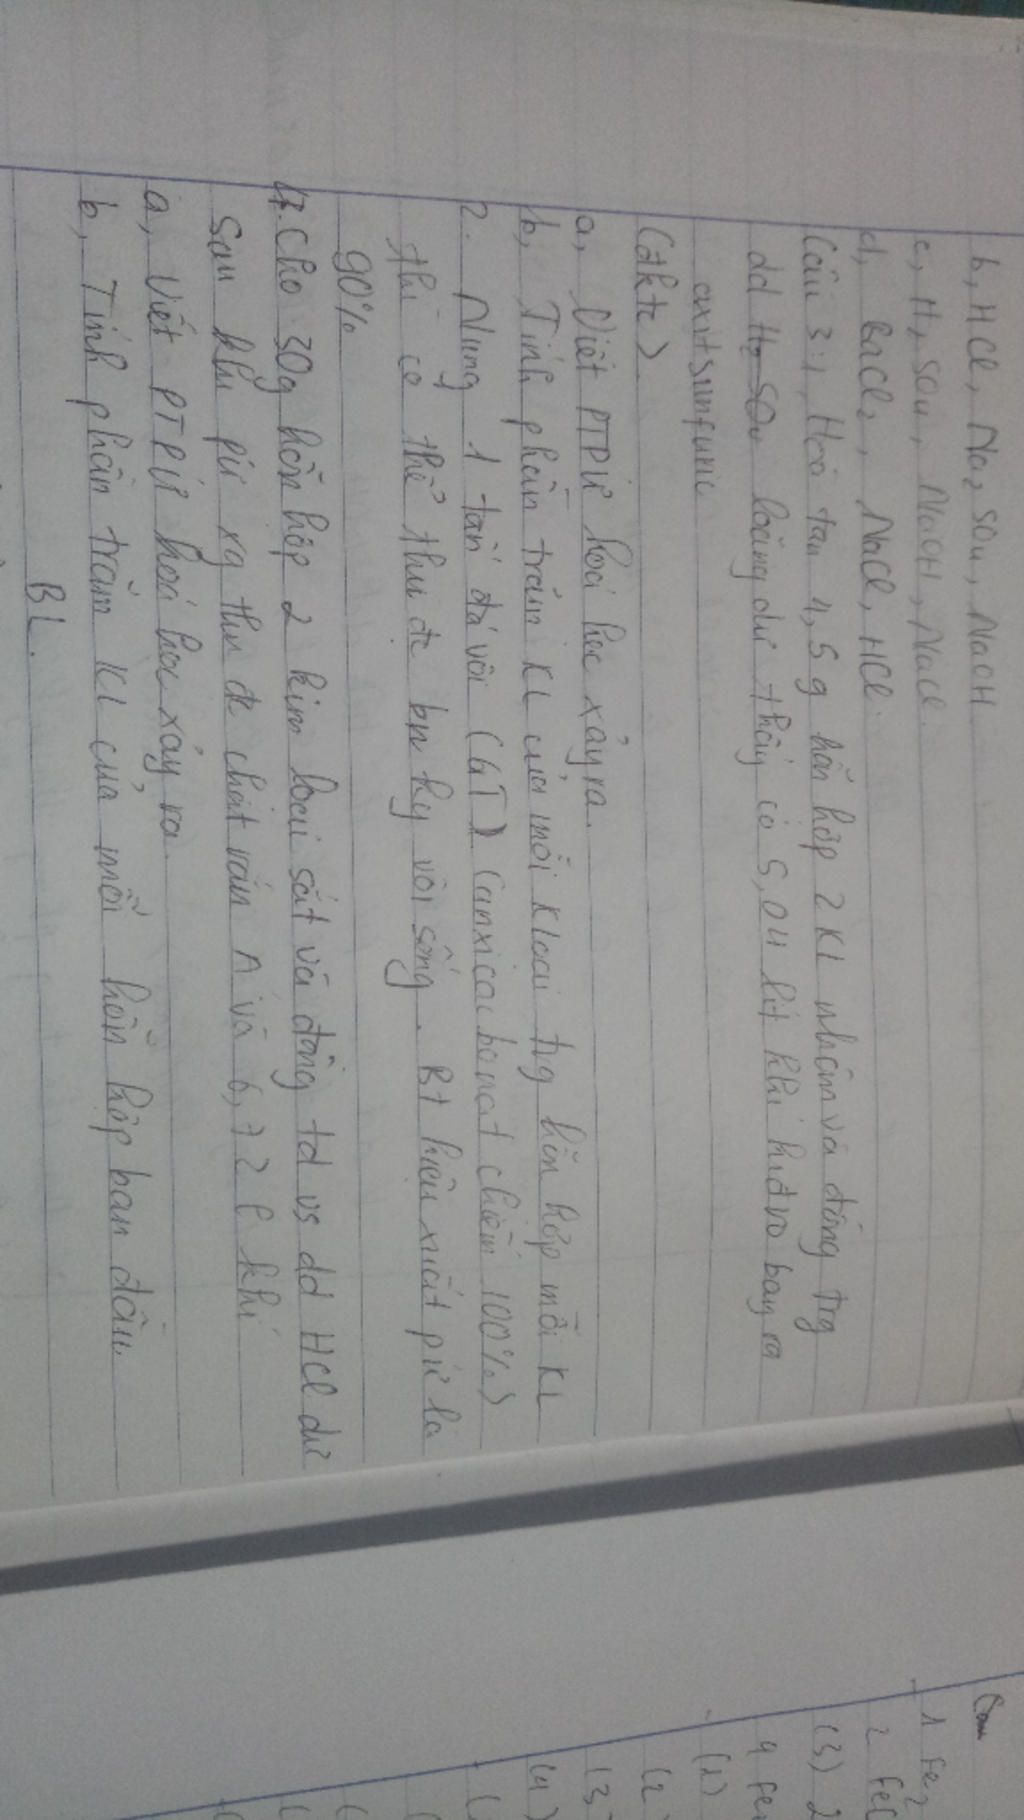 b, HCl, Na2SO4, NaOH
c, H2SO4, NaOH, NaCl
d, BaCl2, NaCl, HCl.
Câu 3: 1, Hoà tan 4,5 g hỗn hợp 2 KL nhôm và đồng trg
dd H2SO4 loãng dư thấy có 5,04 lít khí hiđro bay ra
axit sunfuric
(đktc).
a, Viết PTPƯ hoá học xảy ra.
b, Tính phần trăm KL của mỗi kloại trg hỗn hợp mỗi KL
2. Nung 1 tấn đá vôi (GT) (canxicacbonat chiếm 100%)
thì có thể thu đc bn kg vôi sống. Bt hiệu suất pư là
90%
4. Cho 30g hỗn hợp 2 kim loại sắt và đồng td vs dd HCl dư
Sau khi pư xg thu đc chất rắn A và 6,72 l khí
a, Viết PTPƯ hoá học xảy ra.
b, Tính phần trăm KL của mỗi hỗn hợp ban đầu.
BL.
Câu
1 Fe2
2 FeC
(3) 2
4 Fe
(1)
(2
(3
(4)